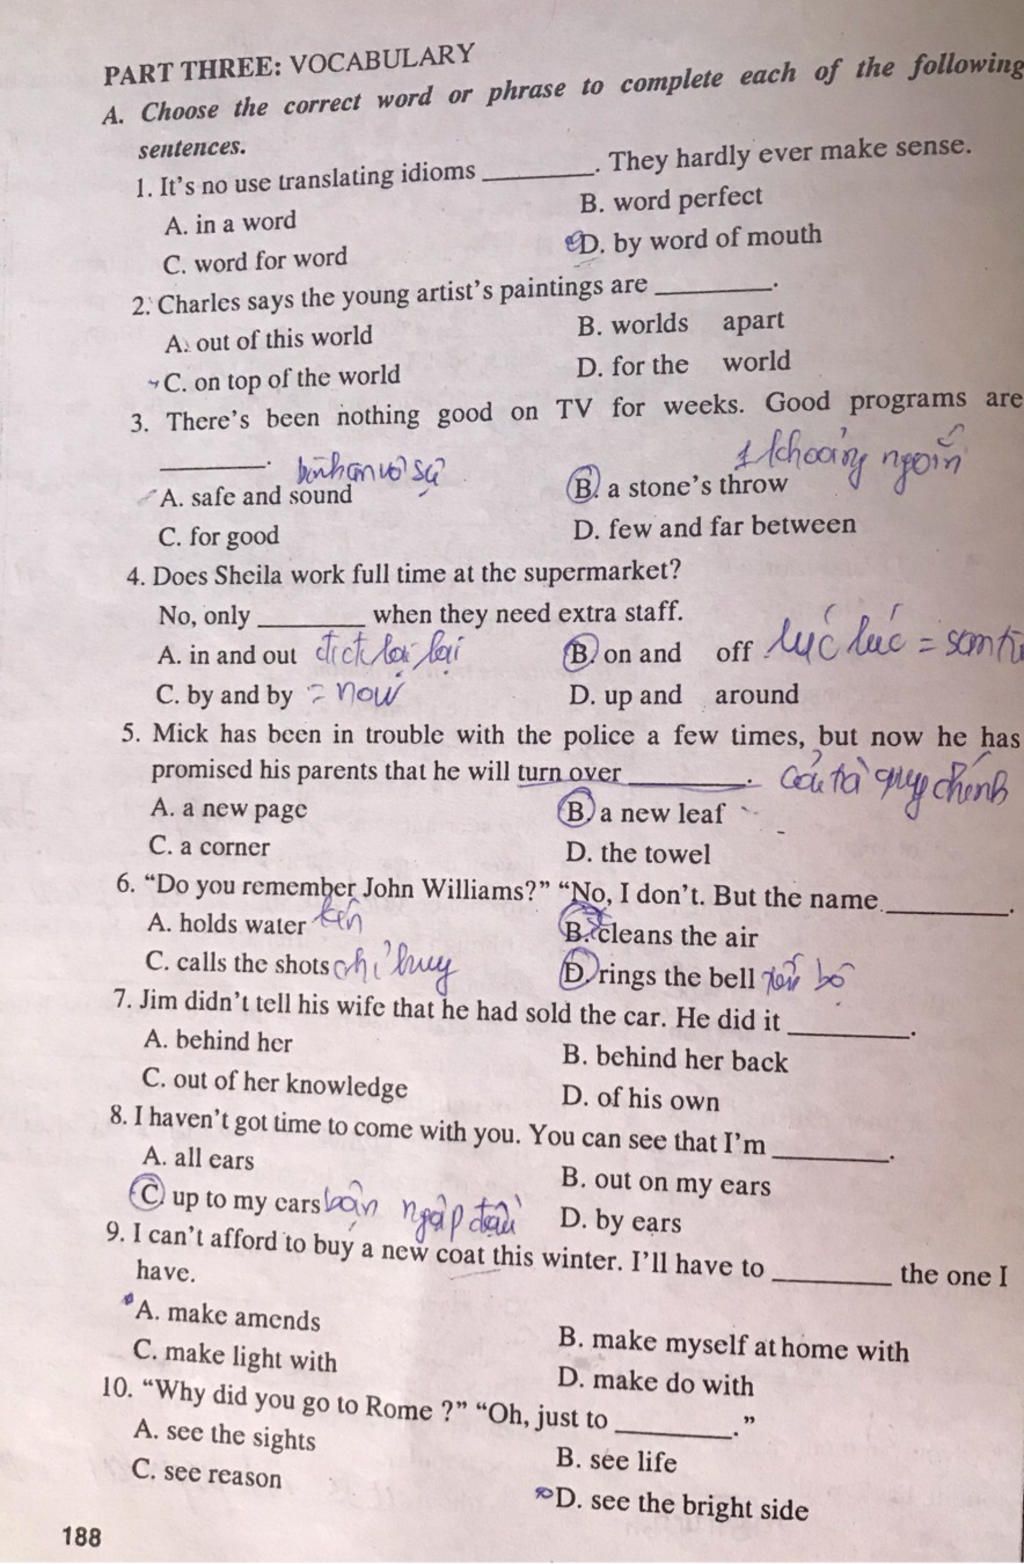 PART THREE: VOCABULARY
A. Choose the correct word or phrase to complete each of the following
sentences.
1. It's no use translating idioms ________. They hardly ever make sense.
A. in a word
B. word perfect
C. word for word
D. by word of mouth
2. Charles says the young artist's paintings are ________.
A. out of this world
B. worlds apart
C. on top of the world
D. for the world
3. There's been nothing good on TV for weeks. Good programs are
________. bình an vô sự
1 khoảng ngắn
A. safe and sound
B. a stone's throw
C. for good
D. few and far between
4. Does Sheila work full time at the supermarket?
No, only ________ when they need extra staff.
A. in and out
B. on and off lúc lúc =
C. by and by = now
D. up and around
5. Mick has been in trouble with the police a few times, but now he has
promised his parents that he will turn over ________. cải tà quy chính
A. a new page
B. a new leaf
C. a corner
D. the towel
6. "Do you remember John Williams?" "No, I don't. But the name ________.
A. holds water
B. cleans the air
C. calls the shots chỉ huy
D. rings the bell
7. Jim didn't tell his wife that he had sold the car. He did it ________.
A. behind her
B. behind her back
C. out of her knowledge
D. of his own
8. I haven't got time to come with you. You can see that I'm ________.
A. all ears
B. out on my ears
C. up to my ears bận ngập đầu
D. by ears
9. I can't afford to buy a new coat this winter. I'll have to ________ the one I
have.
A. make amends
B. make myself at home with
C. make light with
D. make do with
10. "Why did you go to Rome ?" "Oh, just to ________."
A. see the sights
B. see life
C. see reason
D. see the bright side
188